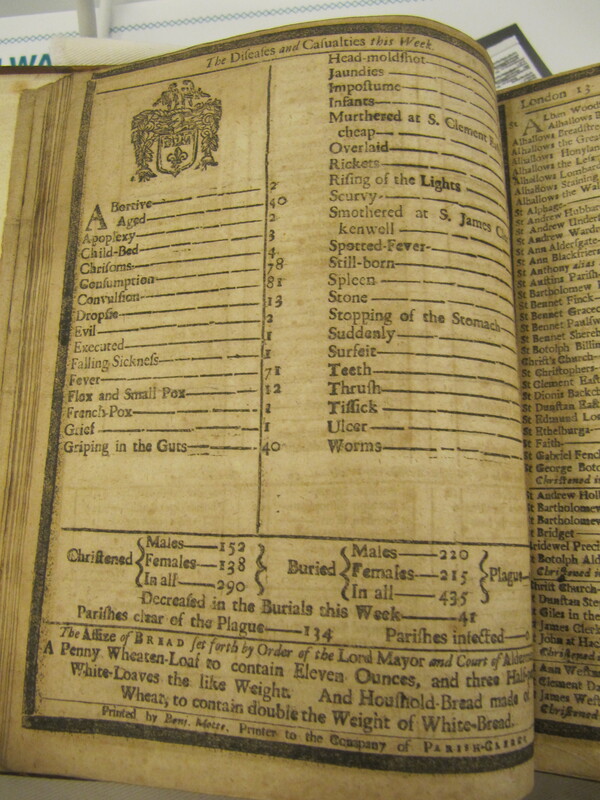 LWA
The Diseases and Casualties this Week.
Abortive 2
Aged 40
Apoplexy 2
Child-Bed 3
Chrisoms 4
Consumption 78
Convulsion 81
Dropsie 13
Evil 2
Executed 1
Falling-Sickness 1
Fever 71
Flox and Small Pox 12
French-Pox
Grief 1
Griping in the Guts 40
Head-moldshot
Jaundies
Impostume
Infants
Murthered at S. Clement
cheap
Overlaid
Rickets
Rising of the Lights
Scurvy
Smothered at S. James
kenwell
Spotted-Fever
Still-born
Spleen
Stone
Stopping of the Stomach
Suddenly
Surfeit
Teeth
Thrush
Tissick
Ulcer
Worms
Christened { Males 152
Females 138
In all 290 }
Buried { Males 220
Females 215
In all 435 } Plague
Decreased in the Burials this Week 41
Parishes clear of the Plague 134 Parishes infected 0
The Assize of BREAD set forth by Order of the Lord Mayor and Court of
A Penny Wheaten-Loaf to contain Eleven Ounces, and three
White-Loaves the like Weight. And Houshold-Bread made
Wheat, to contain double the Weight of White-Bread.
Printed by Benj. Motte, Printer to the Company of PARISH-CLERKS
London 13
St Alban Wood
Alhallows
Alhallows Breadstre
Alhallows the Grea
Alhallows Honylan
Alhallows the Less
Alhallows Lombar
Alhallows Stainin
Alhallows the Wal
St Alphage
St Andrew Hubbar
St Andrew Underf
St Andrew Wardr
St Ann Aldersgate
St Ann Blackfriers
St Anthony alias
St Austins Parish
St Bartholomew
St Bennet Finck
St Bennet Gracec
St Bennet Paulsw
St Bennet Sherch
St Botolph Billin
Christ's Church
St Christophers
St Clement East
St Dionis Backch
St Dunstan East
St Edmund Lo
St Ethelburga
St Faith
St Gabriel Fench
St George Boto
Christened i
St Andrew Holl
St Bartholomew
St Bartholomew
St Bridget
Bridewel Preci
St Botolph Ald
Christened
Christ Church
St Dunstan Ste
St Giles in the
St James Clerk
St John at Hac
Christened
St Ann Westm
St Clement Da
St James West
Christened